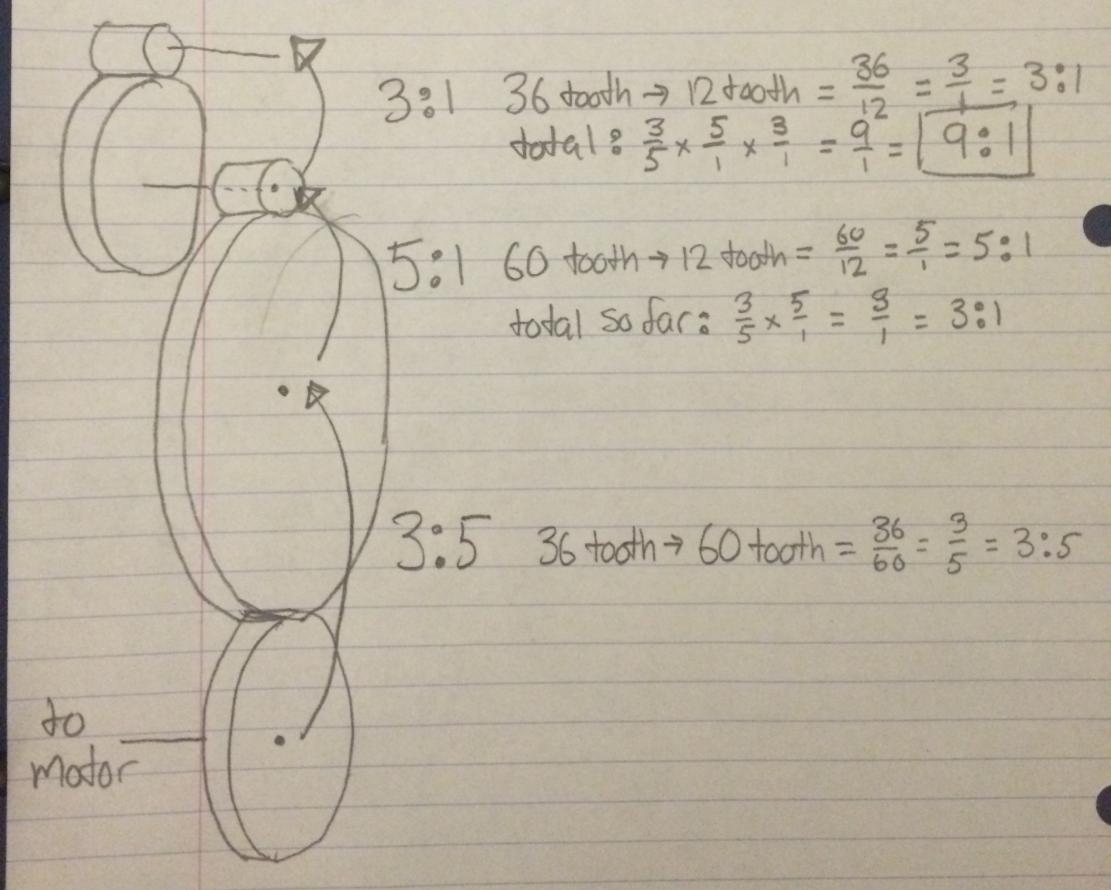 3:1 36 tooth → 12 tooth = 36/12 = 3/1 = 3:1
total: 3/5 × 5/1 × 3/1 = 9/1 = 9:1
5:1 60 tooth → 12 tooth = 60/12 = 5/1 = 5:1
total so far: 3/5 × 5/1 = 3/1 = 3:1
3:5 36 tooth → 60 tooth = 36/60 = 3/5 = 3:5
to
motor